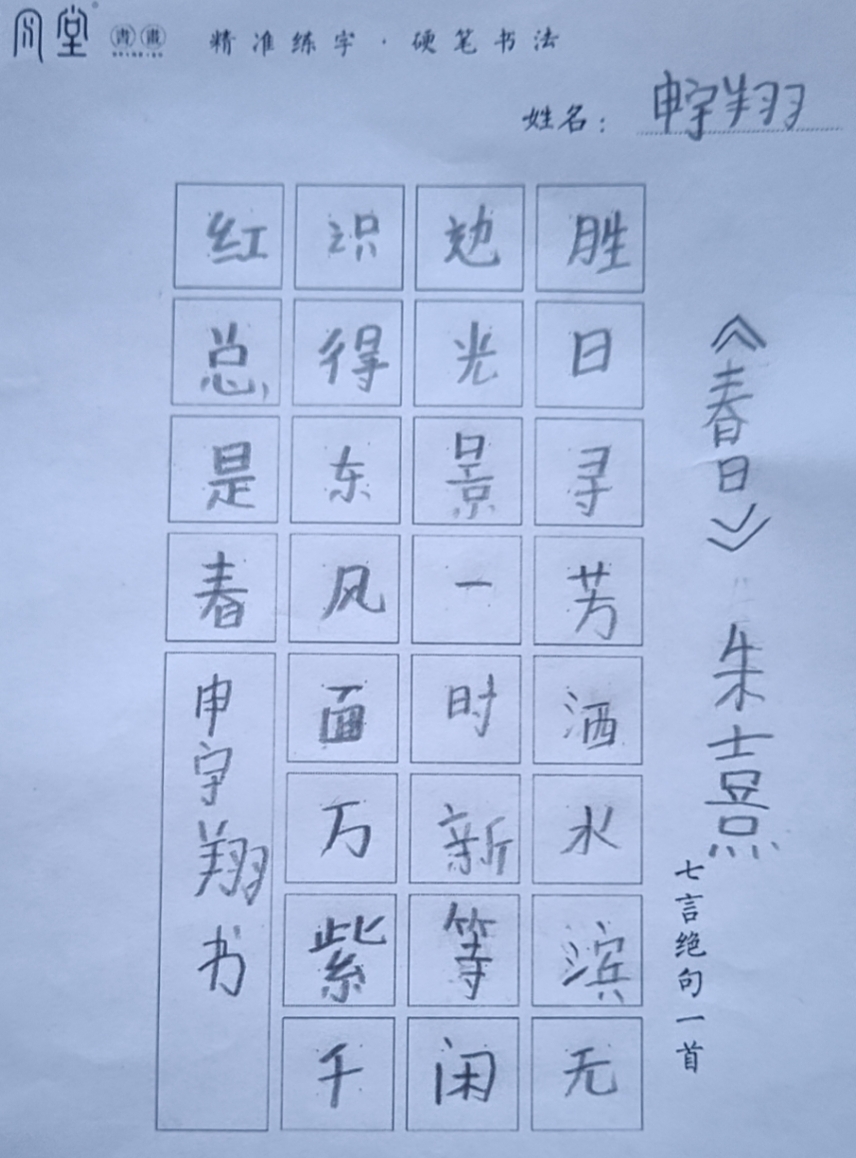 堂 書畫 精准练字·硬笔书法
姓名：申宇翔
《春日》 朱熹
七言绝句一首
胜日寻芳洒水滨无
光景一时新等闲
识得东风面万紫千
红总是春
申宇翔书